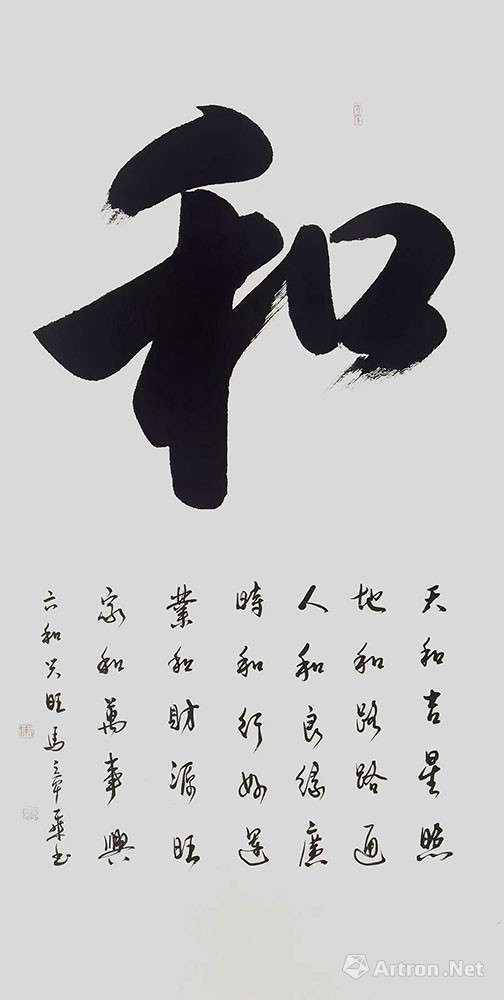 和
天和吉星照
地和路路通
人和良缘广
時和行好運
業和財源旺
家和萬事興
六和兴旺 馬章乘书
Artron.Net